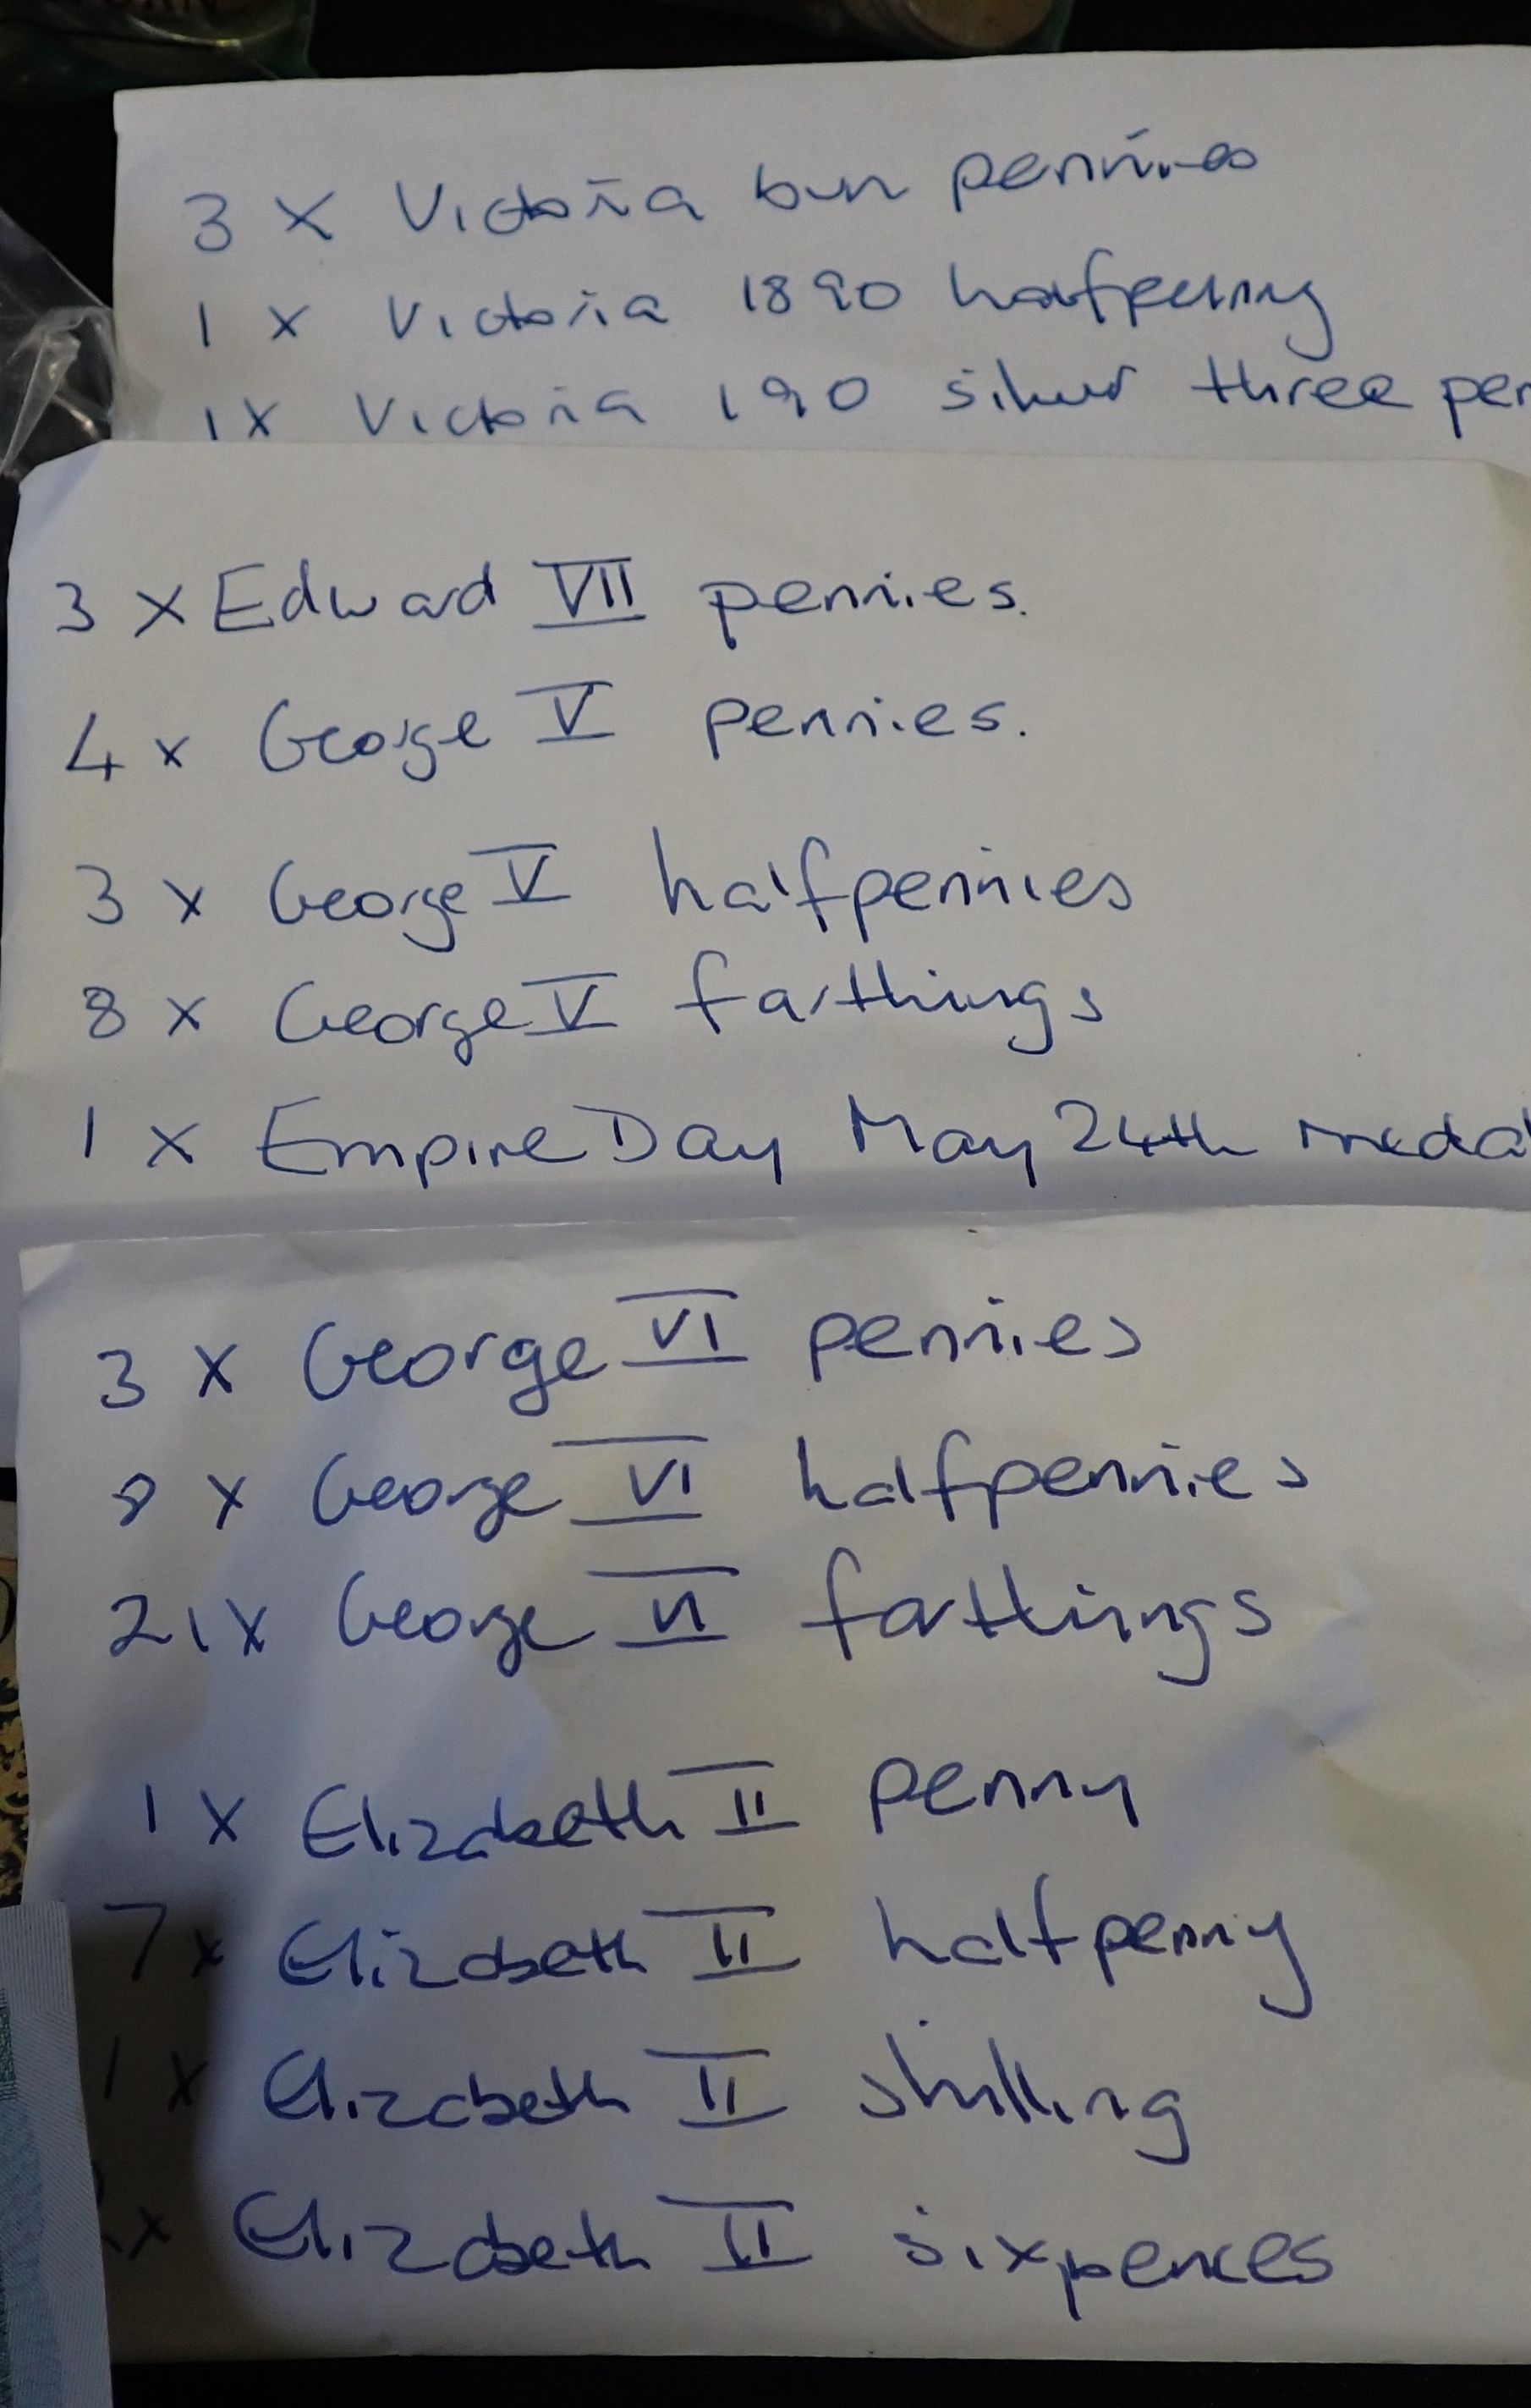 3 x Victoria bun pennies
1 x Victoria 1890 halfpenny
1 x Victoria 190 silver three per
3 x Edward VII pennies.
4 x George V pennies.
3 x George V halfpennies
8 x George V farthings
1 x Empire Day May 24th medal
3 x George VI pennies
8 x George VI halfpennies
21 x George VI farthings
1 x Elizabeth II penny
7 x Elizabeth II halfpenny
1 x Elizabeth II shilling
x Elizabeth II sixpences